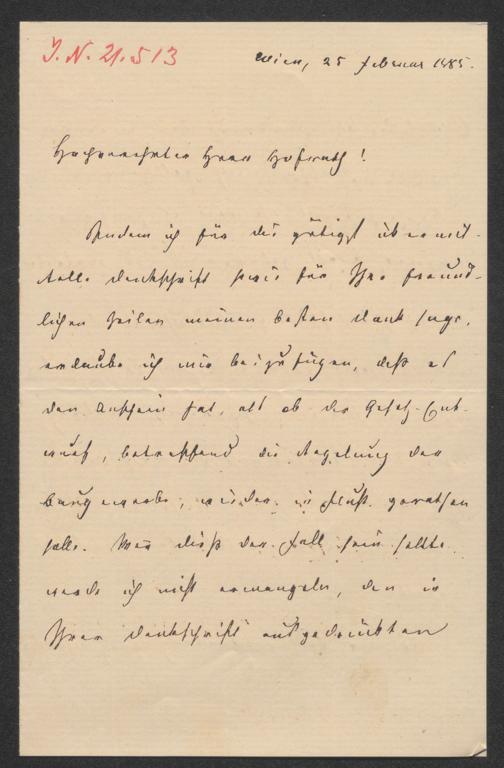 J. N. 21.513
Wien, 25 Februar 1885.
Hochverehrter Herr Hofrath!
Indem ich für die gütigst übermit-
telte Denkschrift sowie für Ihre freund-
lichen Zeilen meinen besten Dank sage,
erlaube ich mir beizufügen, daß es
den Anschein hat, als ob der Gesetz-Ent-
wurf, betreffend die Regelung der
Baugewerbe, wieder in Fluß gerathen
solle. Wenn dieß der Fall sein sollte
werde ich nicht ermangeln, den in
Ihrer Denkschrift ausgedrückten